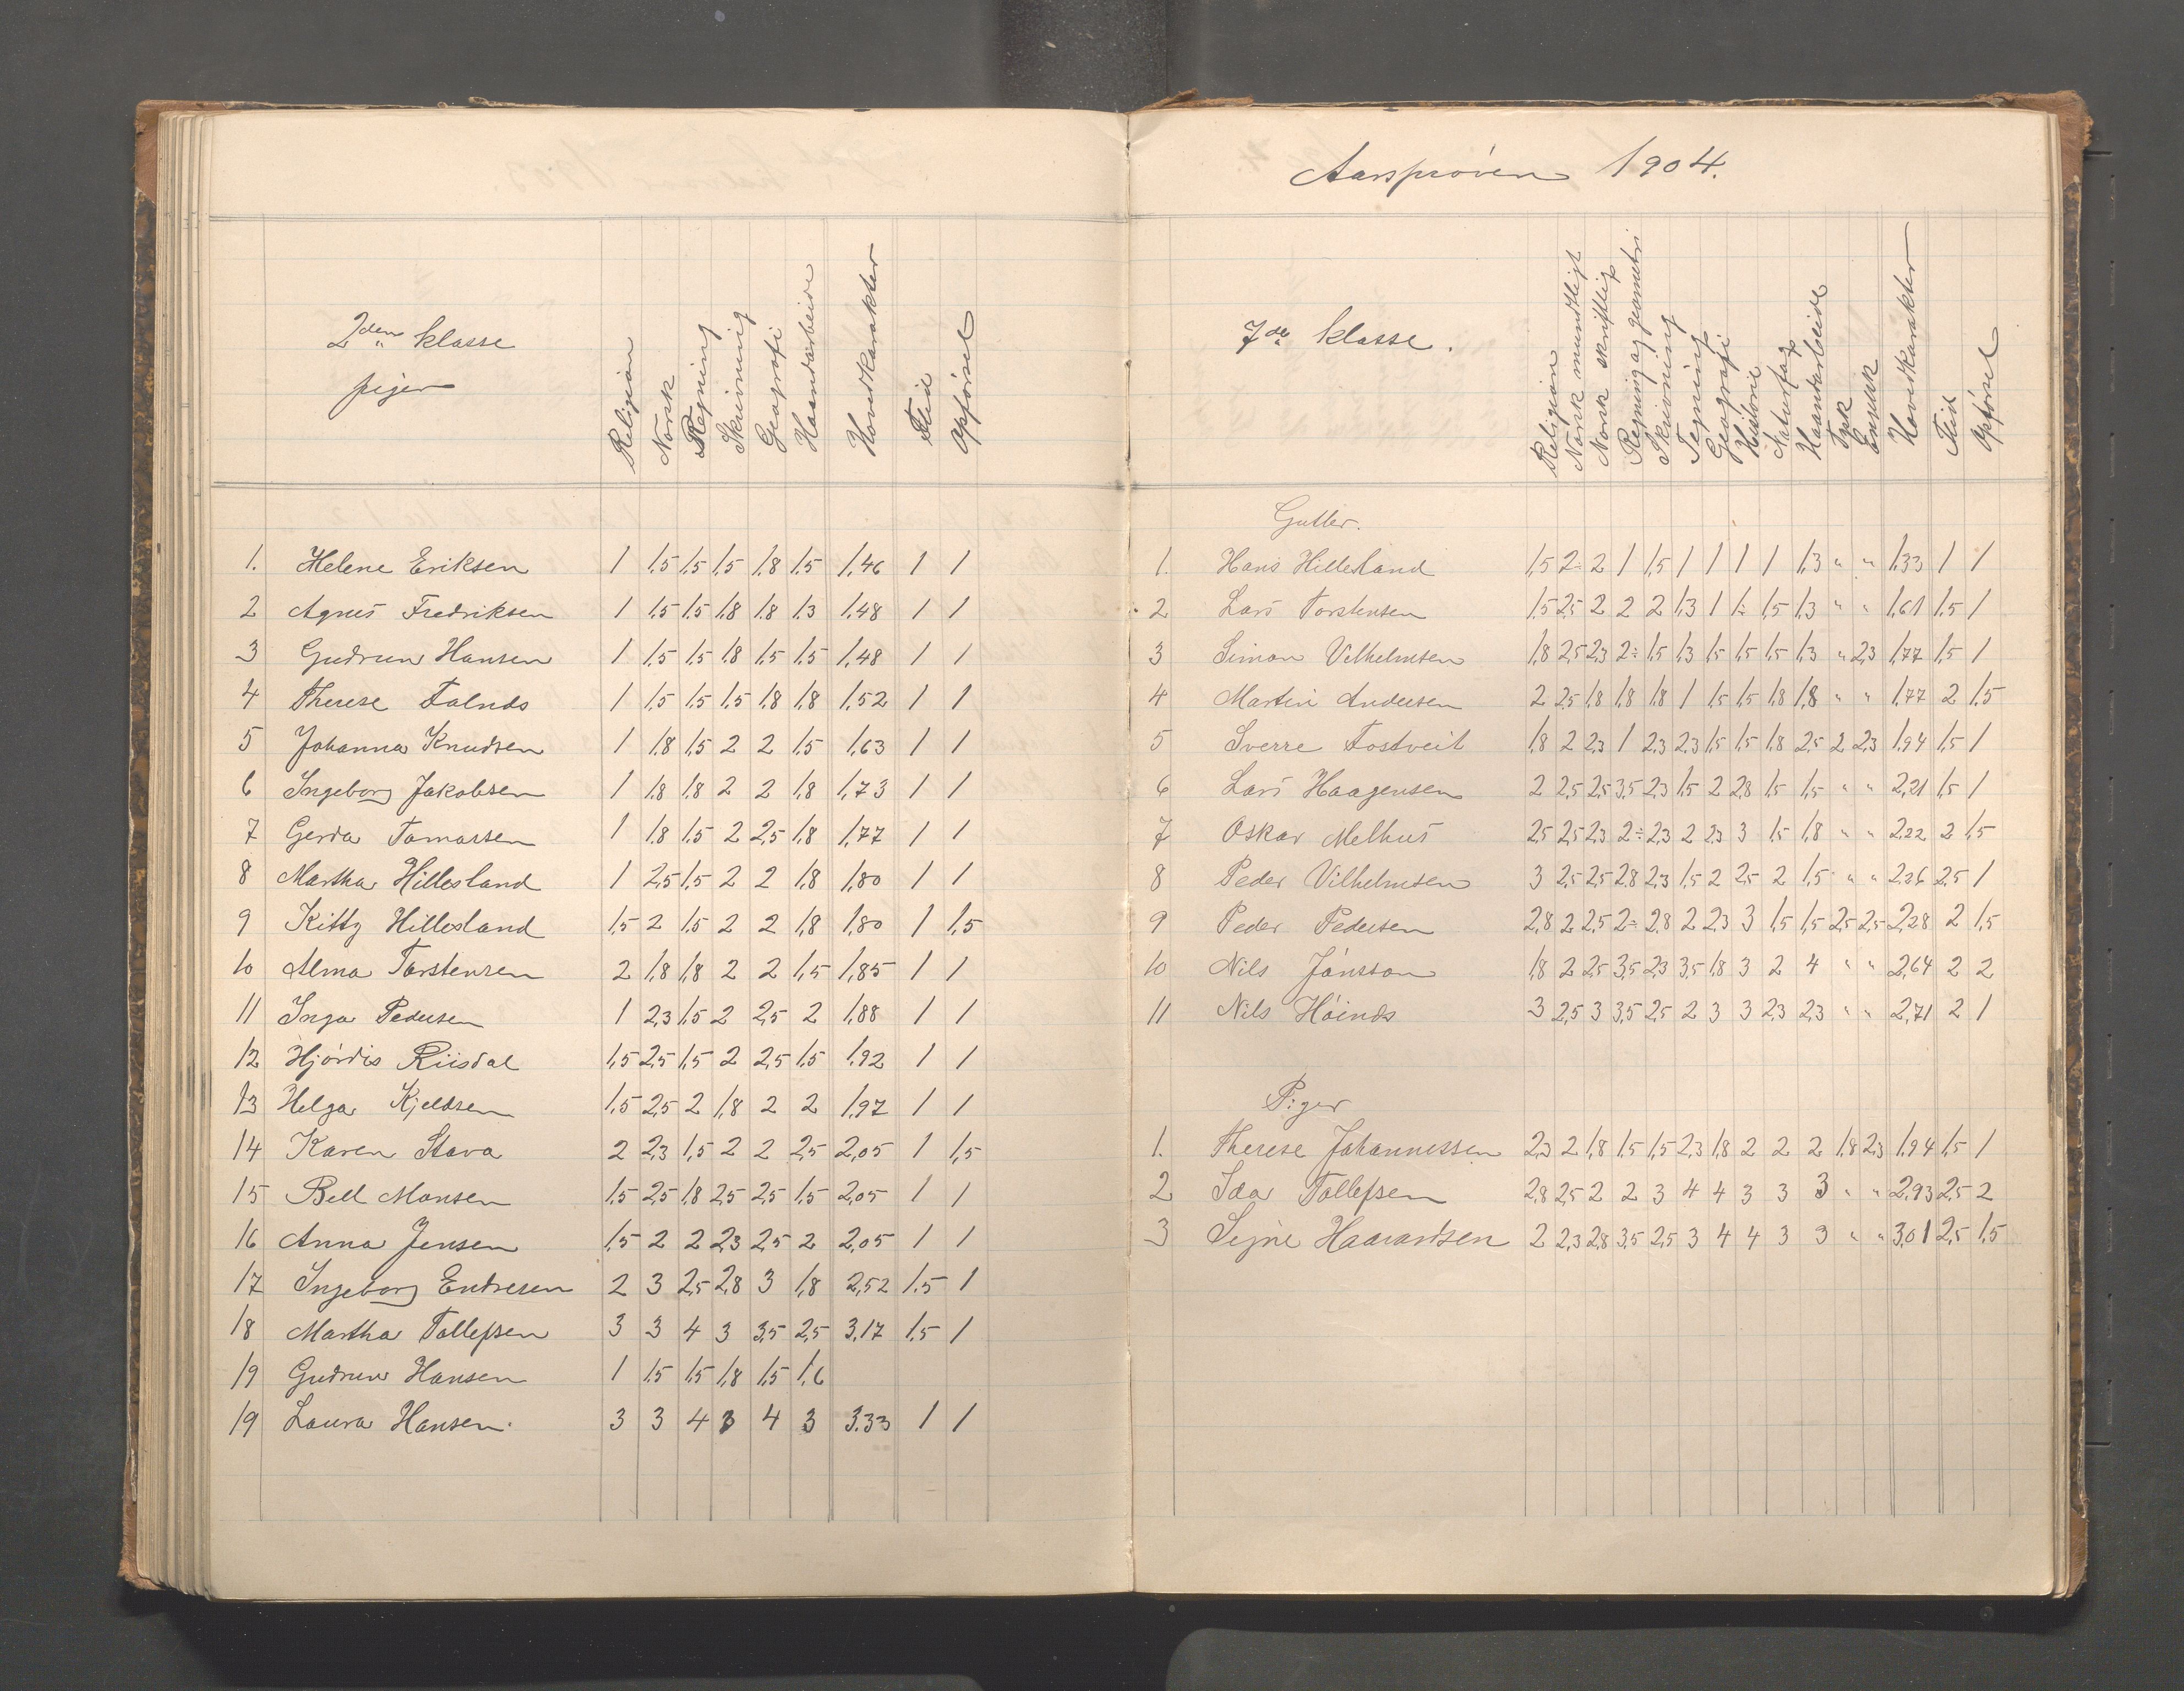 2den klasse
piger
Religion
Norsk
Regning
Skrivning
Geografi
Haandarbeide
Hovedkarakter
Flid
Opførsel
1. Helene Eriksen 1 1,5 1,5 1,5 1,8 1,5 1,46 1 1
2 Agnes Fredriksen 1 1,5 1,5 1,8 1,8 1,3 1,48 1 1
3 Gudrun Hansen 1 1,5 1,5 1,8 1,5 1,5 1,48 1 1
4 Therese 1 1,5 1,5 1,5 1,8 1,8 1,52 1 1
5 Johanna Knudsen 1 1,8 1,5 2 2 1,5 1,63 1 1
6 Ingeborg Jakobsen 1 1,8 1,8 2 2 1,8 1,73 1 1
7 Gerda Tomassen 1 1,8 1,5 2 2,5 1,8 1,77 1 1
8 Martha Hillesland 1 2,5 1,5 2 2 1,8 1,80 1 1
9 Kitty Hillesland 1,5 2 1,5 2 2 1,8 1,80 1 1,5
10 Alma Torstensen 2 1,8 1,8 2 2 1,5 1,85 1 1
11 Inga Pedersen 1 2,3 1,5 2 2,5 2 1,88 1 1
12 Hjørdis Riisdal 1,5 2,5 1,5 2 2,5 1,5 1,92 1 1
13 Helga Kjeldsen 1,5 2,5 2 1,8 2 2 1,97 1 1
14 Karen Stava 2 2,3 1,5 2 2 2,5 2,05 1 1,5
15 Bell Monsen 1,5 2,5 1,8 2,5 2,5 1,5 2,05 1 1
16 Anna Jensen 1,5 2 2 2,3 2,5 2 2,05 1 1
17 Ingeborg Endresen 2 3 2,5 2,8 3 1,8 2,52 1,5 1
18 Martha Tollefsen 3 3 4 3 3,5 2,5 3,17 1,5 1
19 Gudrun Hansen 1 1,5 1,5 1,8 1,5 1,6
19 Laura Hansen. 3 3 4 3 4 3 3.33 1 1
Aarsprøven 1904.
7de klasse.
Religion
Norsk mundtligt
Norsk skriftligt
Regning og geometri
Skrivning
Tegning
Geografi
Historie
Naturfag
Haandarbeide
Tysk
Engelsk
Hovedkarakter
Flid
Opførsel
Gutter.
1. Hans Hillesland 1,5 2÷ 2 1 1,5 1 1 1 1 1,3 " " 1,33 1 1
2 Lars Torstensen 1,5 2,5 2 2 2 1,3 1 1÷ 1,5 1,3 " " 1,61 1,5 1
3 Simon Vilhelmsen 1,8 2,5 2,3 2÷ 1,5 1,3 1,5 1,5 1,5 1,3 " 2,3 1,77 1,5 1
4 Martin Andersen 2 2,5 1,8 1,8 1,8 1 1,5 1,5 1,8 1,8 " " 1,77 2 1,5
5 Sverre Tostveit 1,8 2 2,3 1 2,3 2,3 1,5 1,5 1,8 2,5 2 2,3 1,94 1,5 1
6 Lars Haagensen 2 2,5 2,5 3,5 2,3 1,5 2 2,8 1,5 1,5 " " 2,21 1,5 1
7 Oskar Melhus 2,5 2,5 2,3 2÷ 2,3 2 2,3 3 1,5 1,8 " " 2,22 2 1,5
8 Peder Vilhelmsen 3 2,5 2,5 2,8 2,3 1,5 2 2,5 2 1,5 " " 2,26 2,5 1
9 Peder Pedersen 2,8 2 2,5 2÷ 2,8 2 2,3 3 1,5 1,5 2,5 2,5 2,28 2 1,5
10 Nils Jónsson 1,8 2 2,5 3,5 2,3 3,5 1,8 3 2 4 " " 2,64 2 2
11 Nils 3 2,5 3 3,5 2,5 2 3 3 2,3 2,3 " " 2,71 2 1
Piger
1. Therese Johannessen 2,3 2 1,8 1,5 1,5 2,3 1,8 2 2 2 1,8 2,3 1,94 1,5 1
2 Ida Tollefsen 2,8 2,5 2 2 3 4 4 3 3 3 " " 2,93 2,5 2
3 Signe Haavardsen 2 2,3 2,8 3,5 2,5 3 4 4 3 3 " " 3,01 2,5 1,5